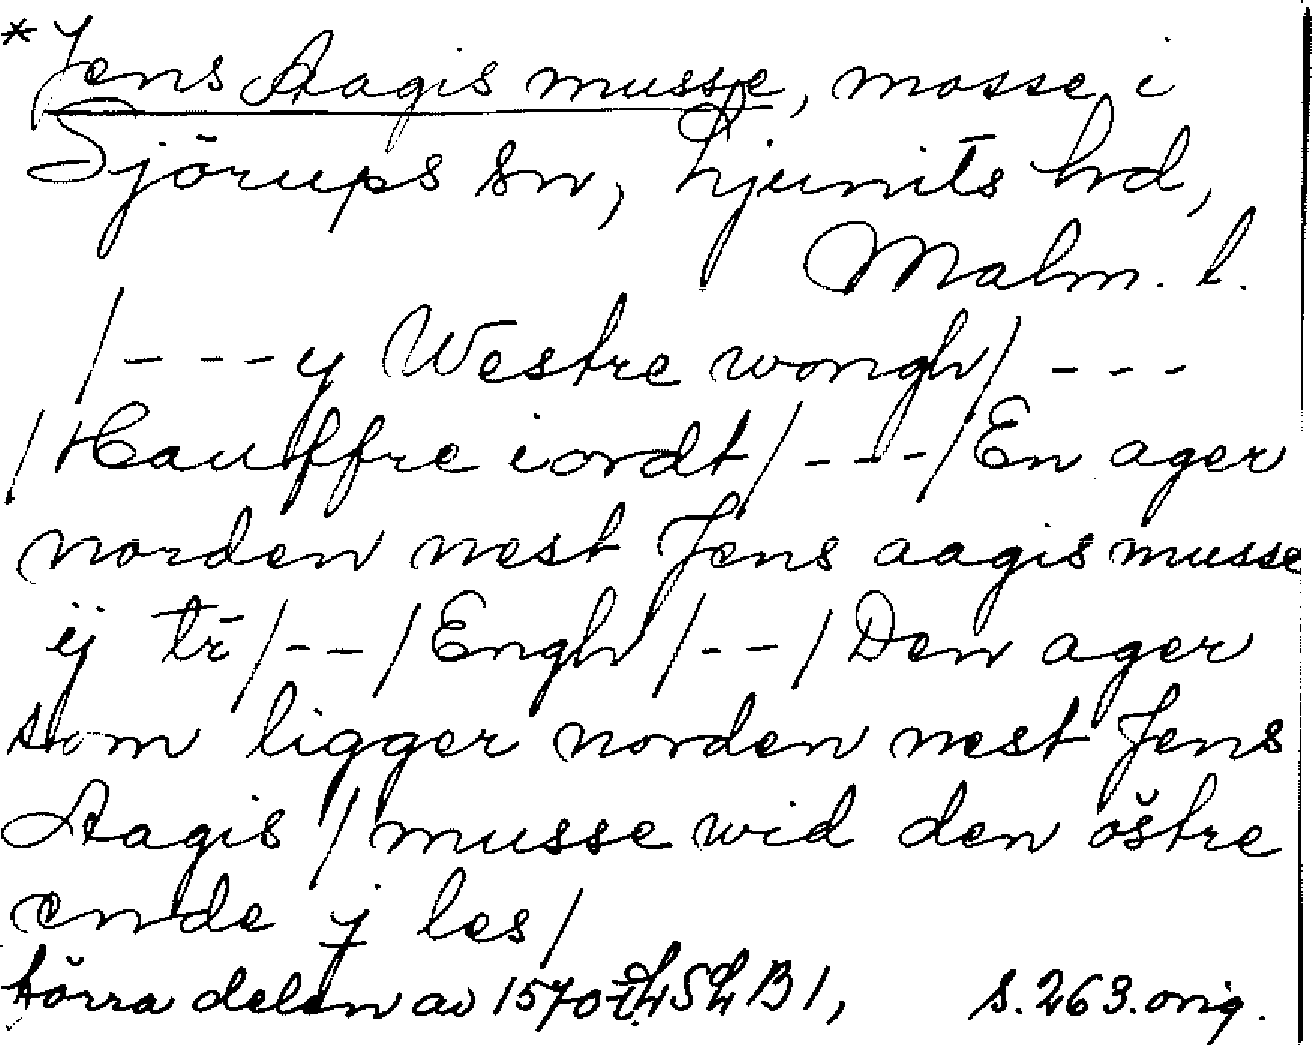 *Jens Aagis musse, mosse i
Sjörups sn, Ljunits hd,
Malm. l.
/ - - - y Westre wongh / - - -
/ Hauffre iordt / - - - / En ager
norden nest Jens aagis musse
ij tr̄ / - - / Engh / - - / Den ager
som ligger norden nest Jens
Aagis / musse wid den östre
ende j les /
 delen av 1570 LSLB1, s. 263. orig.